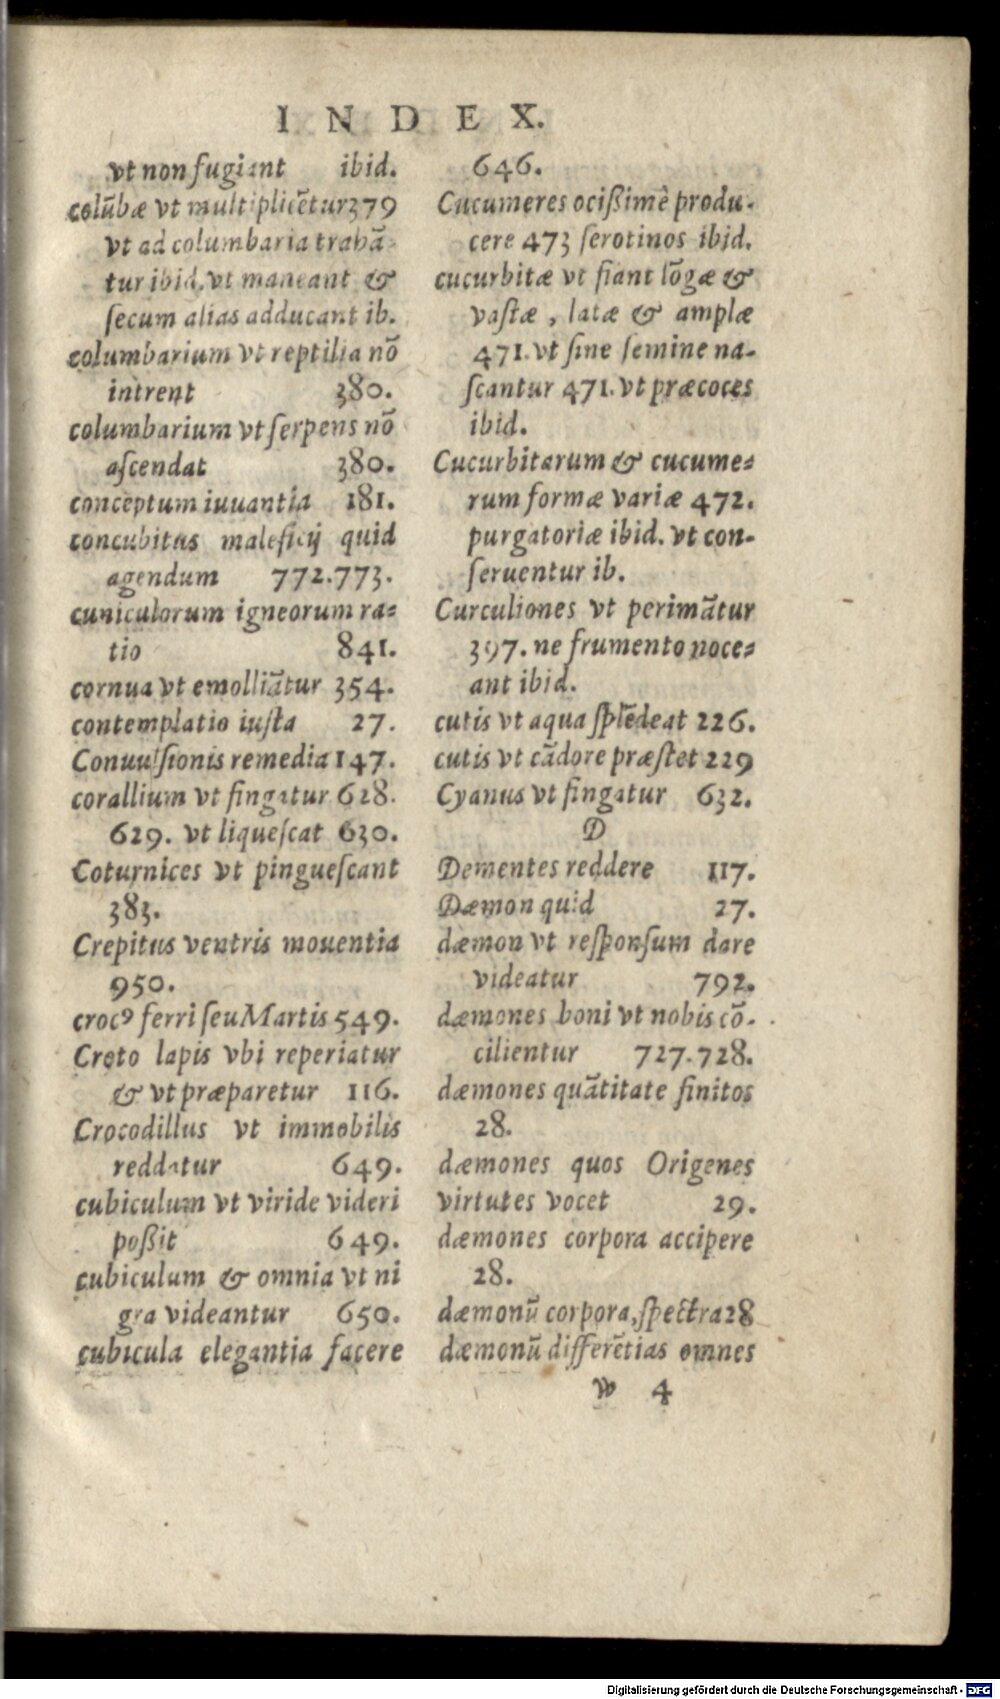 INDEX.
vt non fugiant ibid.
colūbæ vt multiplicētur 379
vt ad columbaria trahā-
tur ibid. vt maneant &
ſecum alias adducant ib.
columbarium vt reptilia nō
intrent 380.
columbarium vt ſerpens nō
aſcendat 380.
conceptum iuuantia 181.
concubitus maleficij quid
agendum 772.773.
cuniculorum igneorum ra-
tio 841.
cornua vt emolliātur 354.
contemplatio iuſta 27.
Conuulſionis remedia 147.
corallium vt fingatur 628.
629. vt liqueſcat 630.
Coturnices vt pingueſcant
383.
Crepitus ventris mouentia
950.
crocꝰ ferri ſeu Martis 549.
Creto lapis vbi reperiatur
& vt præparetur 116.
Crocodillus vt immobilis
reddatur 649.
cubiculum vt viride videri
poßit 649.
cubiculum & omnia vt ni
gra videantur 650.
cubicula elegantia facere
646.
Cucumeres ocißimè produ-
cere 473 ſerotinos ibid.
cucurbitæ vt fiant lōgæ &
vaſtæ, latæ & amplæ
471. vt ſine ſemine na-
ſcantur 471. vt præcoces
ibid.
Cucurbitarum & cucume-
rum formæ variæ 472.
purgatoriæ ibid. vt con-
ſeruentur ib.
Curculiones vt perimātur
397. ne frumento noce-
ant ibid.
cutis vt aqua ſplēdeat 226.
cutis vt cādore præſtet 229
Cyanus vt fingatur 632.
D
Dementes reddere 117.
Dæmon quid 27.
dæmon vt reſponſum dare
videatur 792.
dæmones boni vt nobis cō-
cilientur 727.728.
dæmones quātitate finitos
28.
dæmones quos Origenes
virtutes vocet 29.
dæmones corpora accipere
28.
dæmonū corpora, ſpectra 28
dæmonū differētias omnes
4
Digitalisierung gefördert durch die Deutsche Forschungsgemeinschaft - DFG